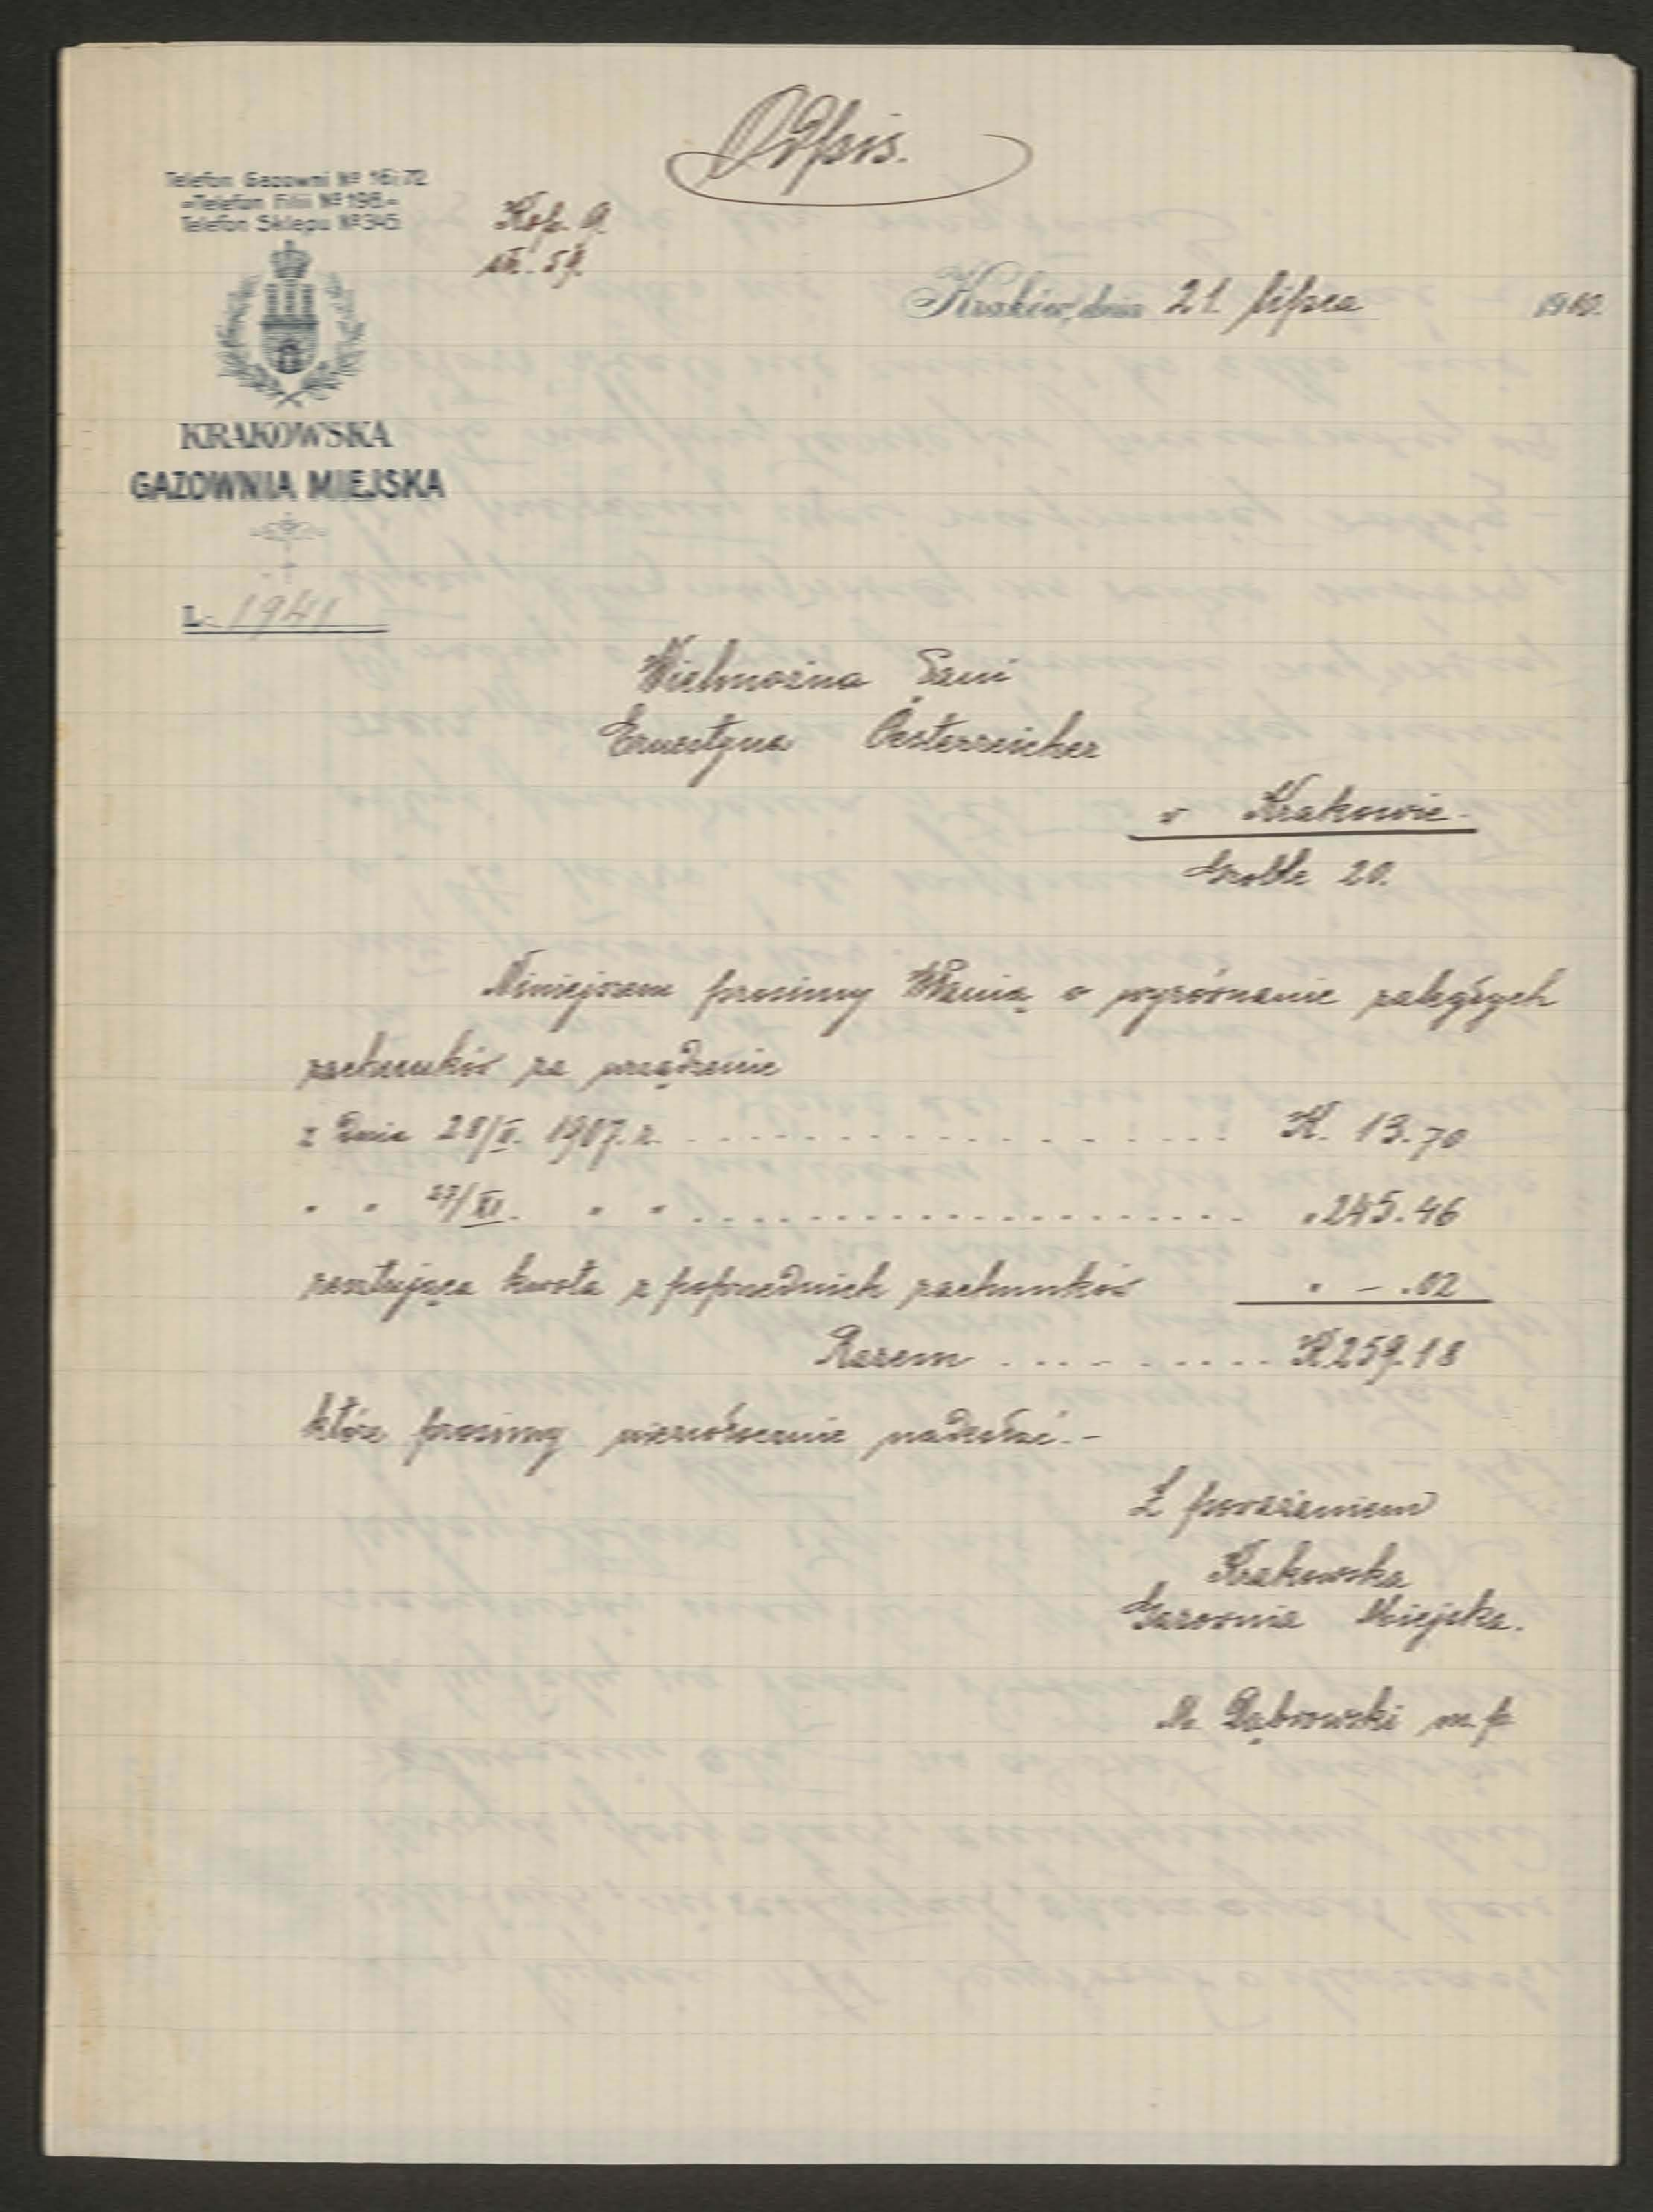 Odpis.
Telefon Gazowni № 16i72
-Telefon Filii № 196.-
Telefon Sklepu № 345
Kop. 9.
str. 59.
Kraków, dnia 21. lipca 1910.
KRAKOWSKA
GAZOWNIA MIEJSKA
L: 1941
Wielmożna Pani
Ernestyna Oesterreicher
w Krakowie.
Groble 20.
Niniejszem prosimy WPanią o wyrównanie zaległych
rachunków za urządzenie
z dnia 28/X. 1907. r. K. 13.70
" " 27/XI. " " " 245.46
resztująca kwota z poprzednich rachunków " - .02
Razem K 259.18
które prosimy niezwłocznie nadesłać.-
Z poważeniem
Krakowska
Gazownia Miejska.
M. Dąbrowski m.p.